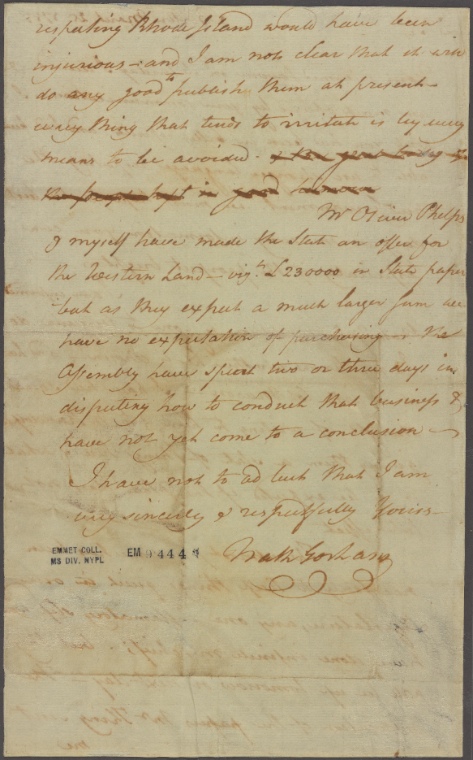 respecting Rhode Island would have been
injurious - and I am not clear that it will
do any good to publish them at present -
every thing that tends to irritate is by every
means to be avoided. & the great body of
the people kept in good humour
Mr Oliver Phelps
& myself have made the State an offer for
the Western Land - vizt. £230000 in State paper
but as they expect a much larger sum we
have no expectation of purchasing - The
Assembly have spent two or three days in
disputing how to conduct that business &
have not yet come to a conclusion -
I have not to ad but that I am
very sincerely & respectfully Yours -
Nath Gorham
EMMET COLL.
MS DIV. NYPL
EM 9444